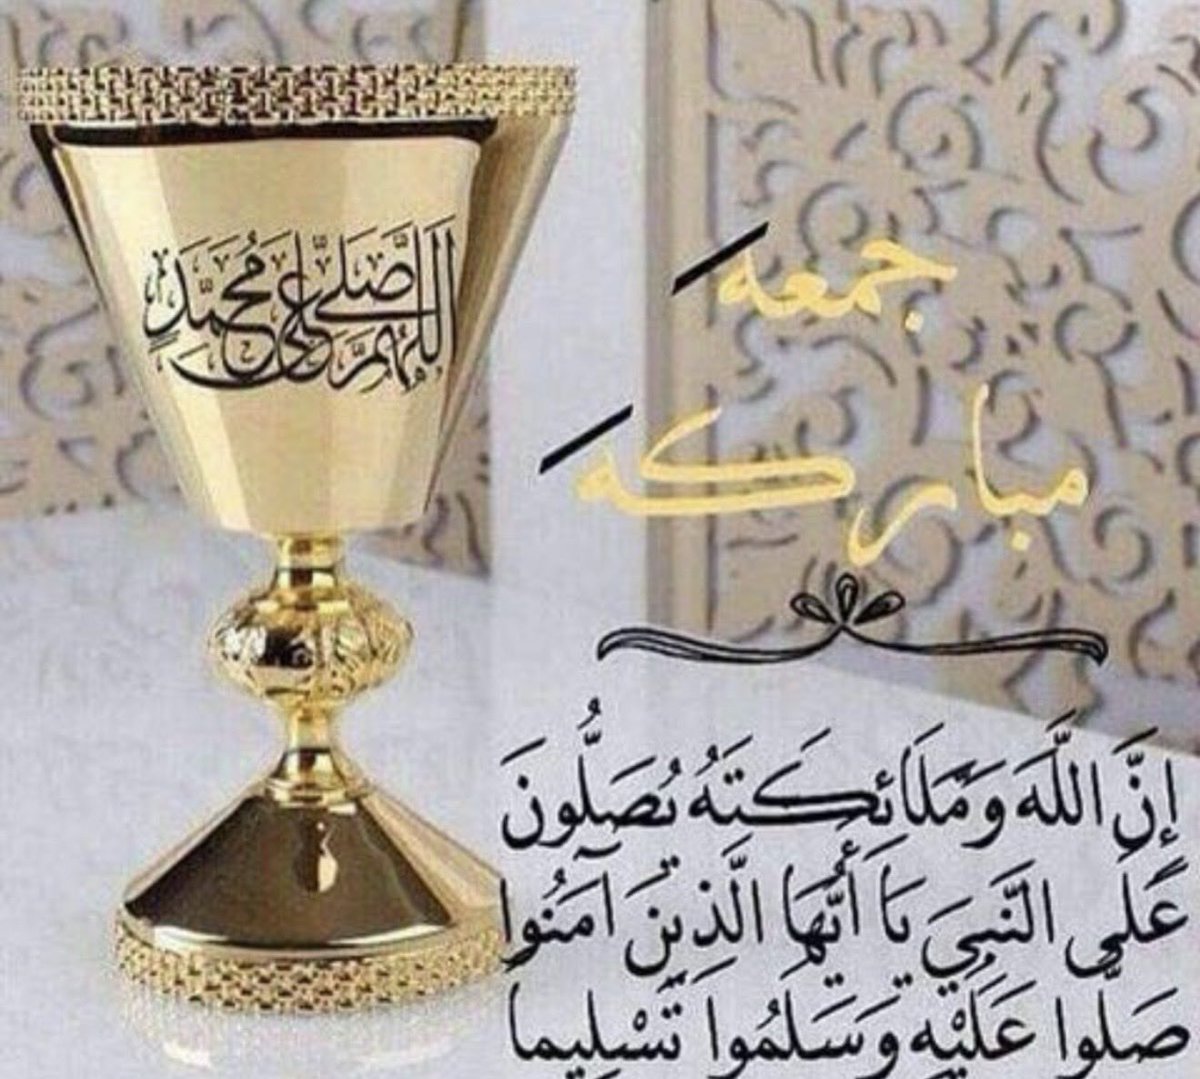 اللهم صل على محمد
جمعه
مباركه
إِنَّ اللَّهَ وَمَلَائِكَتَهُ يُصَلُّونَ
عَلَى النَّبِيِّ يَا أَيُّهَا الَّذِينَ آمَنُوا
صَلُّوا عَلَيْهِ وَسَلِّمُوا تَسْلِيما